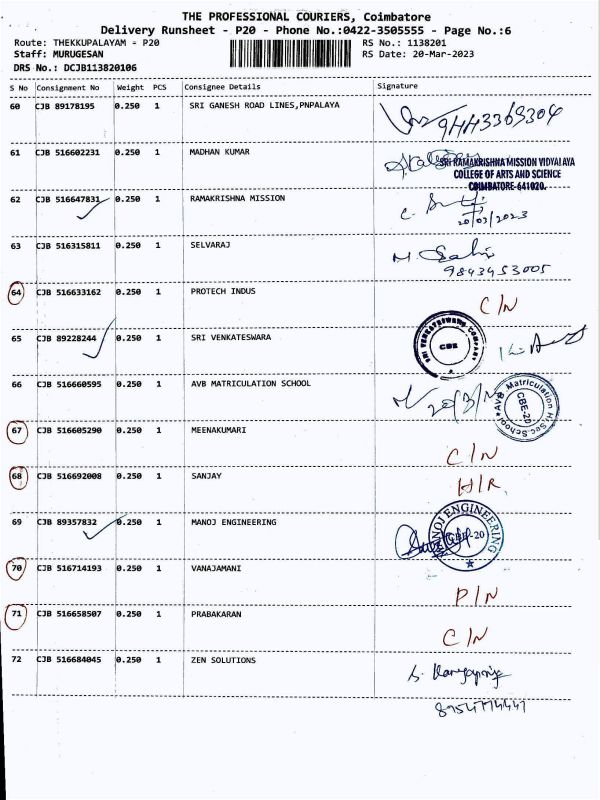 THE PROFESSIONAL COURIERS, Coimbatore
Delivery Runsheet - P20 - Phone No.:0422-3505555 - Page No.:6
Route: THEKKUPALAYAM - P20 RS No.: 1138201
Staff: MURUGESAN RS Date: 20-Mar-2023
DRS No.: DCJB113820106
S No Consignment No Weight PCS Consignee Details Signature
60 CJB 89178195 0.250 1 SRI GANESH ROAD LINES,PNPALAYA
61 CJB 516602231 0.250 1 MADHAN KUMAR
SRI RAMAKRISHNA MISSION VIDYALAYA
COLLEGE OF ARTS AND SCIENCE
COIMBATORE-641020.
62 CJB 516647831 0.250 1 RAMAKRISHNA MISSION
20/03/2023
63 CJB 516315811 0.250 1 SELVARAJ
9843953005
64 CJB 516633162 0.250 1 PROTECH INDUS C/N
65 CJB 89228244 0.250 1 SRI VENKATESWARA
SRI VENKATESWARA COMPANY
CBE
66 CJB 516660595 0.250 1 AVB MATRICULATION SCHOOL
AVB Matriculation Hr.Sec.School
CBE-20
67 CJB 516605290 0.250 1 MEENAKUMARI C/N
68 CJB 516692008 0.250 1 SANJAY H/R
69 CJB 89357832 0.250 1 MANOJ ENGINEERING
MANOJ ENGINEERING
CBE-20
70 CJB 516714193 0.250 1 VANAJAMANI P/N
71 CJB 516658507 0.250 1 PRABAKARAN C/N
72 CJB 516684045 0.250 1 ZEN SOLUTIONS